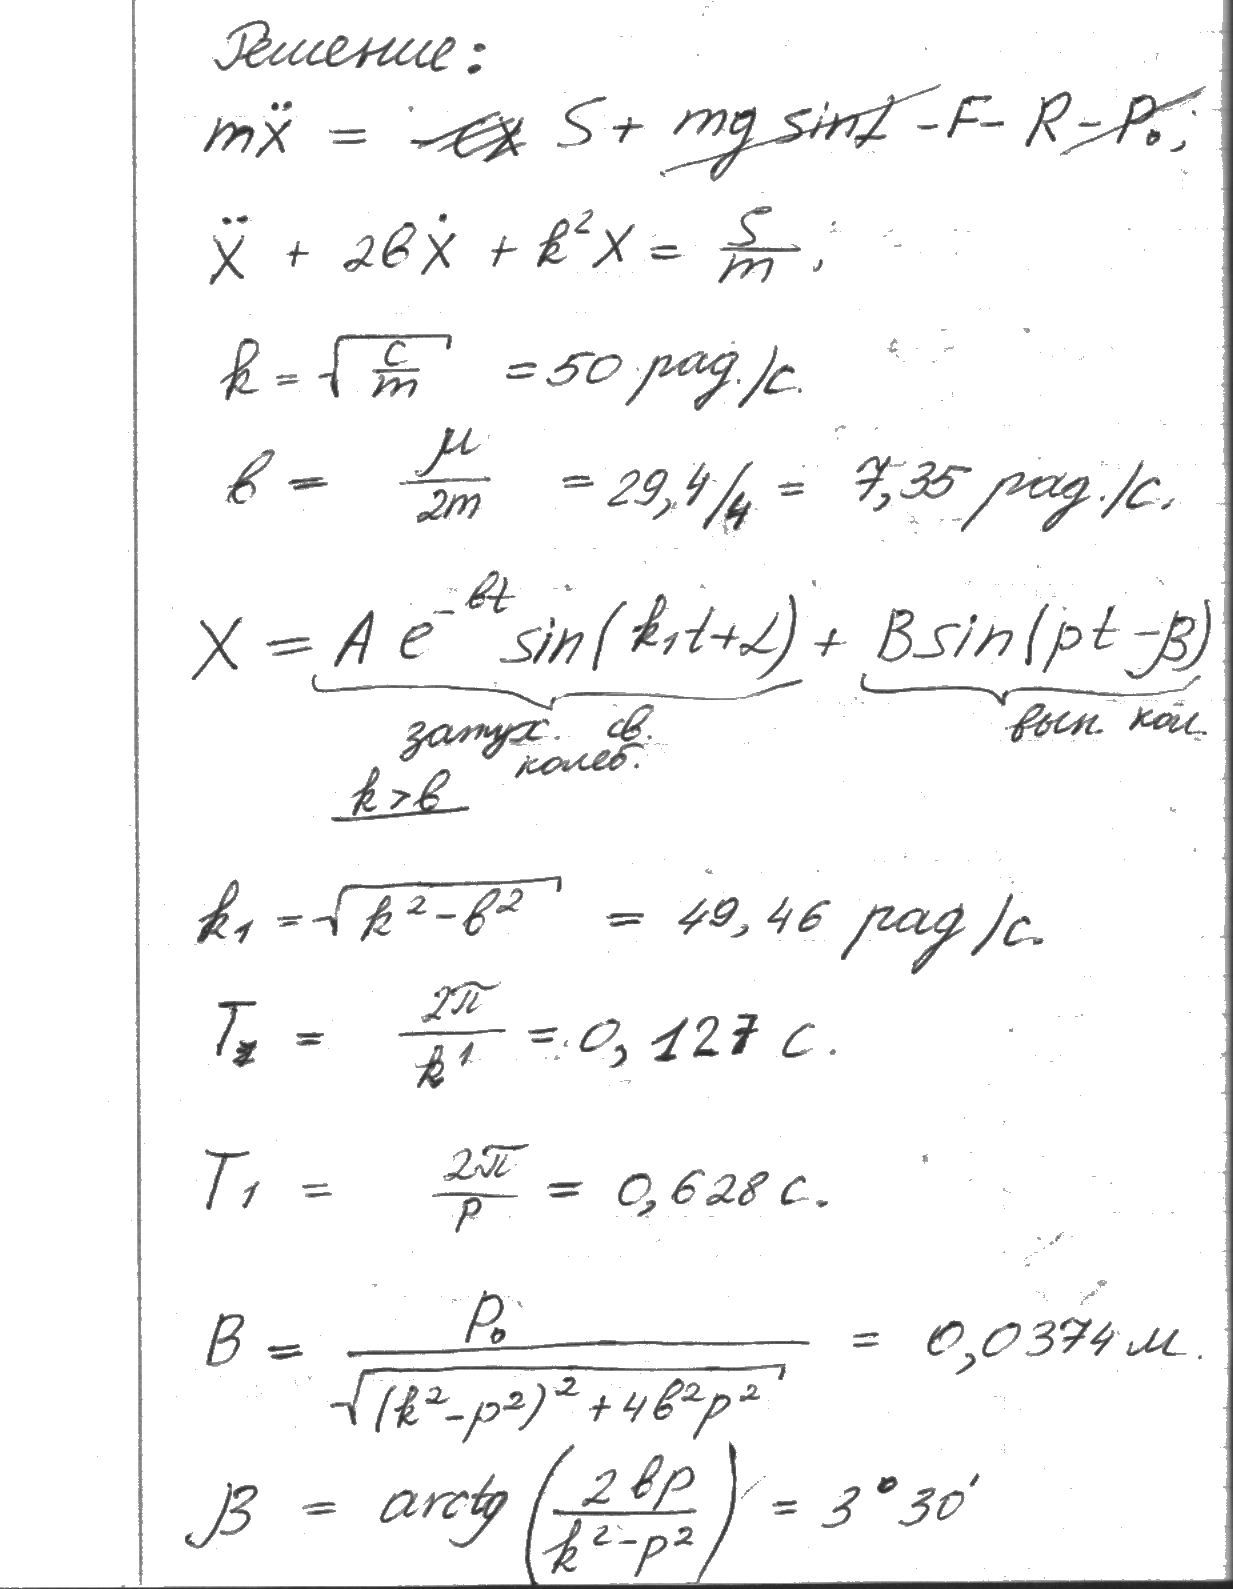 Решение:
mẍ = -cx S + mg sinα - F - R - P₀;
ẍ + 2вẋ + k²x = S/m,
k = √(c/m) = 50 рад./с.
в = μ/2m = 29,4/4 = 7,35 рад./с.
X = A e^(-вt) sin(k₁t+α) + B sin(pt-β)
затух. св. вын. кол.
колеб.
k > в
k₁ = √(k²-в²) = 49,46 рад/с.
T₂ = 2π/k¹ = 0,127 с.
T₁ = 2π/p = 0,628 с.
B = P₀/√((k²-p²)²+4в²p²) = 0,0374 м.
β = arctg(2вp/(k²-p²)) = 3°30'